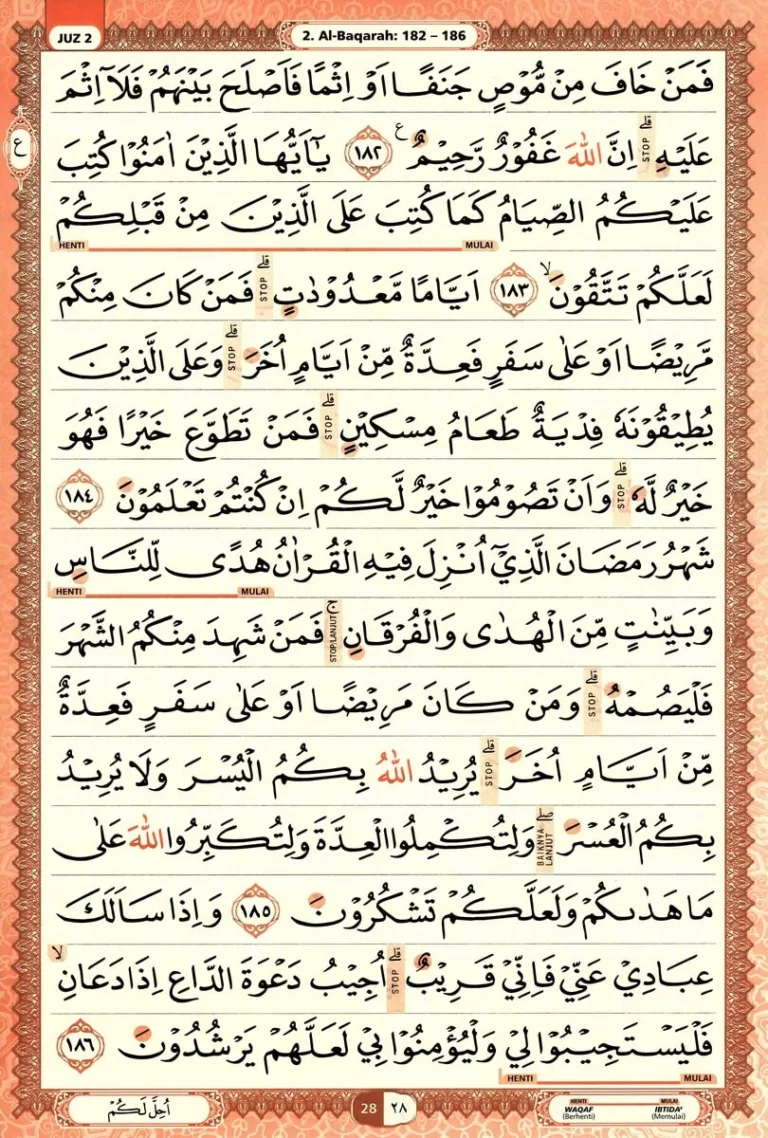 JUZ 2
2. Al-Baqarah: 182 – 186
فَمَنْ خَافَ مِنْ مُّوْصٍ جَنَفًا اَوْ اِثْمًا فَاَصْلَحَ بَيْنَهُمْ فَلَآ اِثْمَ
ع
عَلَيْهِ ۗ STOP اِنَّ اللّٰهَ غَفُوْرٌ رَّحِيْمٌ ࣖ ١٨٢ يٰٓاَيُّهَا الَّذِيْنَ اٰمَنُوْا كُتِبَ
عَلَيْكُمُ الصِّيَامُ كَمَا كُتِبَ عَلَى الَّذِيْنَ مِنْ قَبْلِكُمْ
HENTI MULAI
لَعَلَّكُمْ تَتَّقُوْنَۙ ١٨٣ اَيَّامًا مَّعْدُوْدٰتٍۗ STOP فَمَنْ كَانَ مِنْكُمْ
مَّرِيْضًا اَوْ عَلٰى سَفَرٍ فَعِدَّةٌ مِّنْ اَيَّامٍ اُخَرَ ۗ STOP وَعَلَى الَّذِيْنَ
يُطِيْقُوْنَهٗ فِدْيَةٌ طَعَامُ مِسْكِيْنٍۗ STOP فَمَنْ تَطَوَّعَ خَيْرًا فَهُوَ
خَيْرٌ لَّهٗ ۗ STOP وَاَنْ تَصُوْمُوْا خَيْرٌ لَّكُمْ اِنْ كُنْتُمْ تَعْلَمُوْنَ ١٨٤
شَهْرُ رَمَضَانَ الَّذِيْٓ اُنْزِلَ فِيْهِ الْقُرْاٰنُ هُدًى لِّلنَّاسِ
HENTI MULAI
وَبَيِّنٰتٍ مِّنَ الْهُدٰى وَالْفُرْقَانِۚ STOP/LANJUT فَمَنْ شَهِدَ مِنْكُمُ الشَّهْرَ
فَلْيَصُمْهُ ۗ STOP وَمَنْ كَانَ مَرِيْضًا اَوْ عَلٰى سَفَرٍ فَعِدَّةٌ
مِّنْ اَيَّامٍ اُخَرَ ۗ STOP يُرِيْدُ اللّٰهُ بِكُمُ الْيُسْرَ وَلَا يُرِيْدُ
بِكُمُ الْعُسْرَ ۖ BAIKNYA LANJUT وَلِتُكْمِلُوا الْعِدَّةَ وَلِتُكَبِّرُوا اللّٰهَ عَلٰى
مَا هَدٰىكُمْ وَلَعَلَّكُمْ تَشْكُرُوْنَ ١٨٥ وَاِذَا سَاَلَكَ
عِبَادِيْ عَنِّيْ فَاِنِّيْ قَرِيْبٌ ۗ STOP اُجِيْبُ دَعْوَةَ الدَّاعِ اِذَا دَعَانِۙ
فَلْيَسْتَجِيْبُوْا لِيْ وَلْيُؤْمِنُوْا بِيْ لَعَلَّهُمْ يَرْشُدُوْنَ ١٨٦
HENTI MULAI
اُحِلَّ لَكُمْ
28 ٢٨
HENTI MULAI
WAQAF IBTIDA'
(Berhenti) (Memulai)